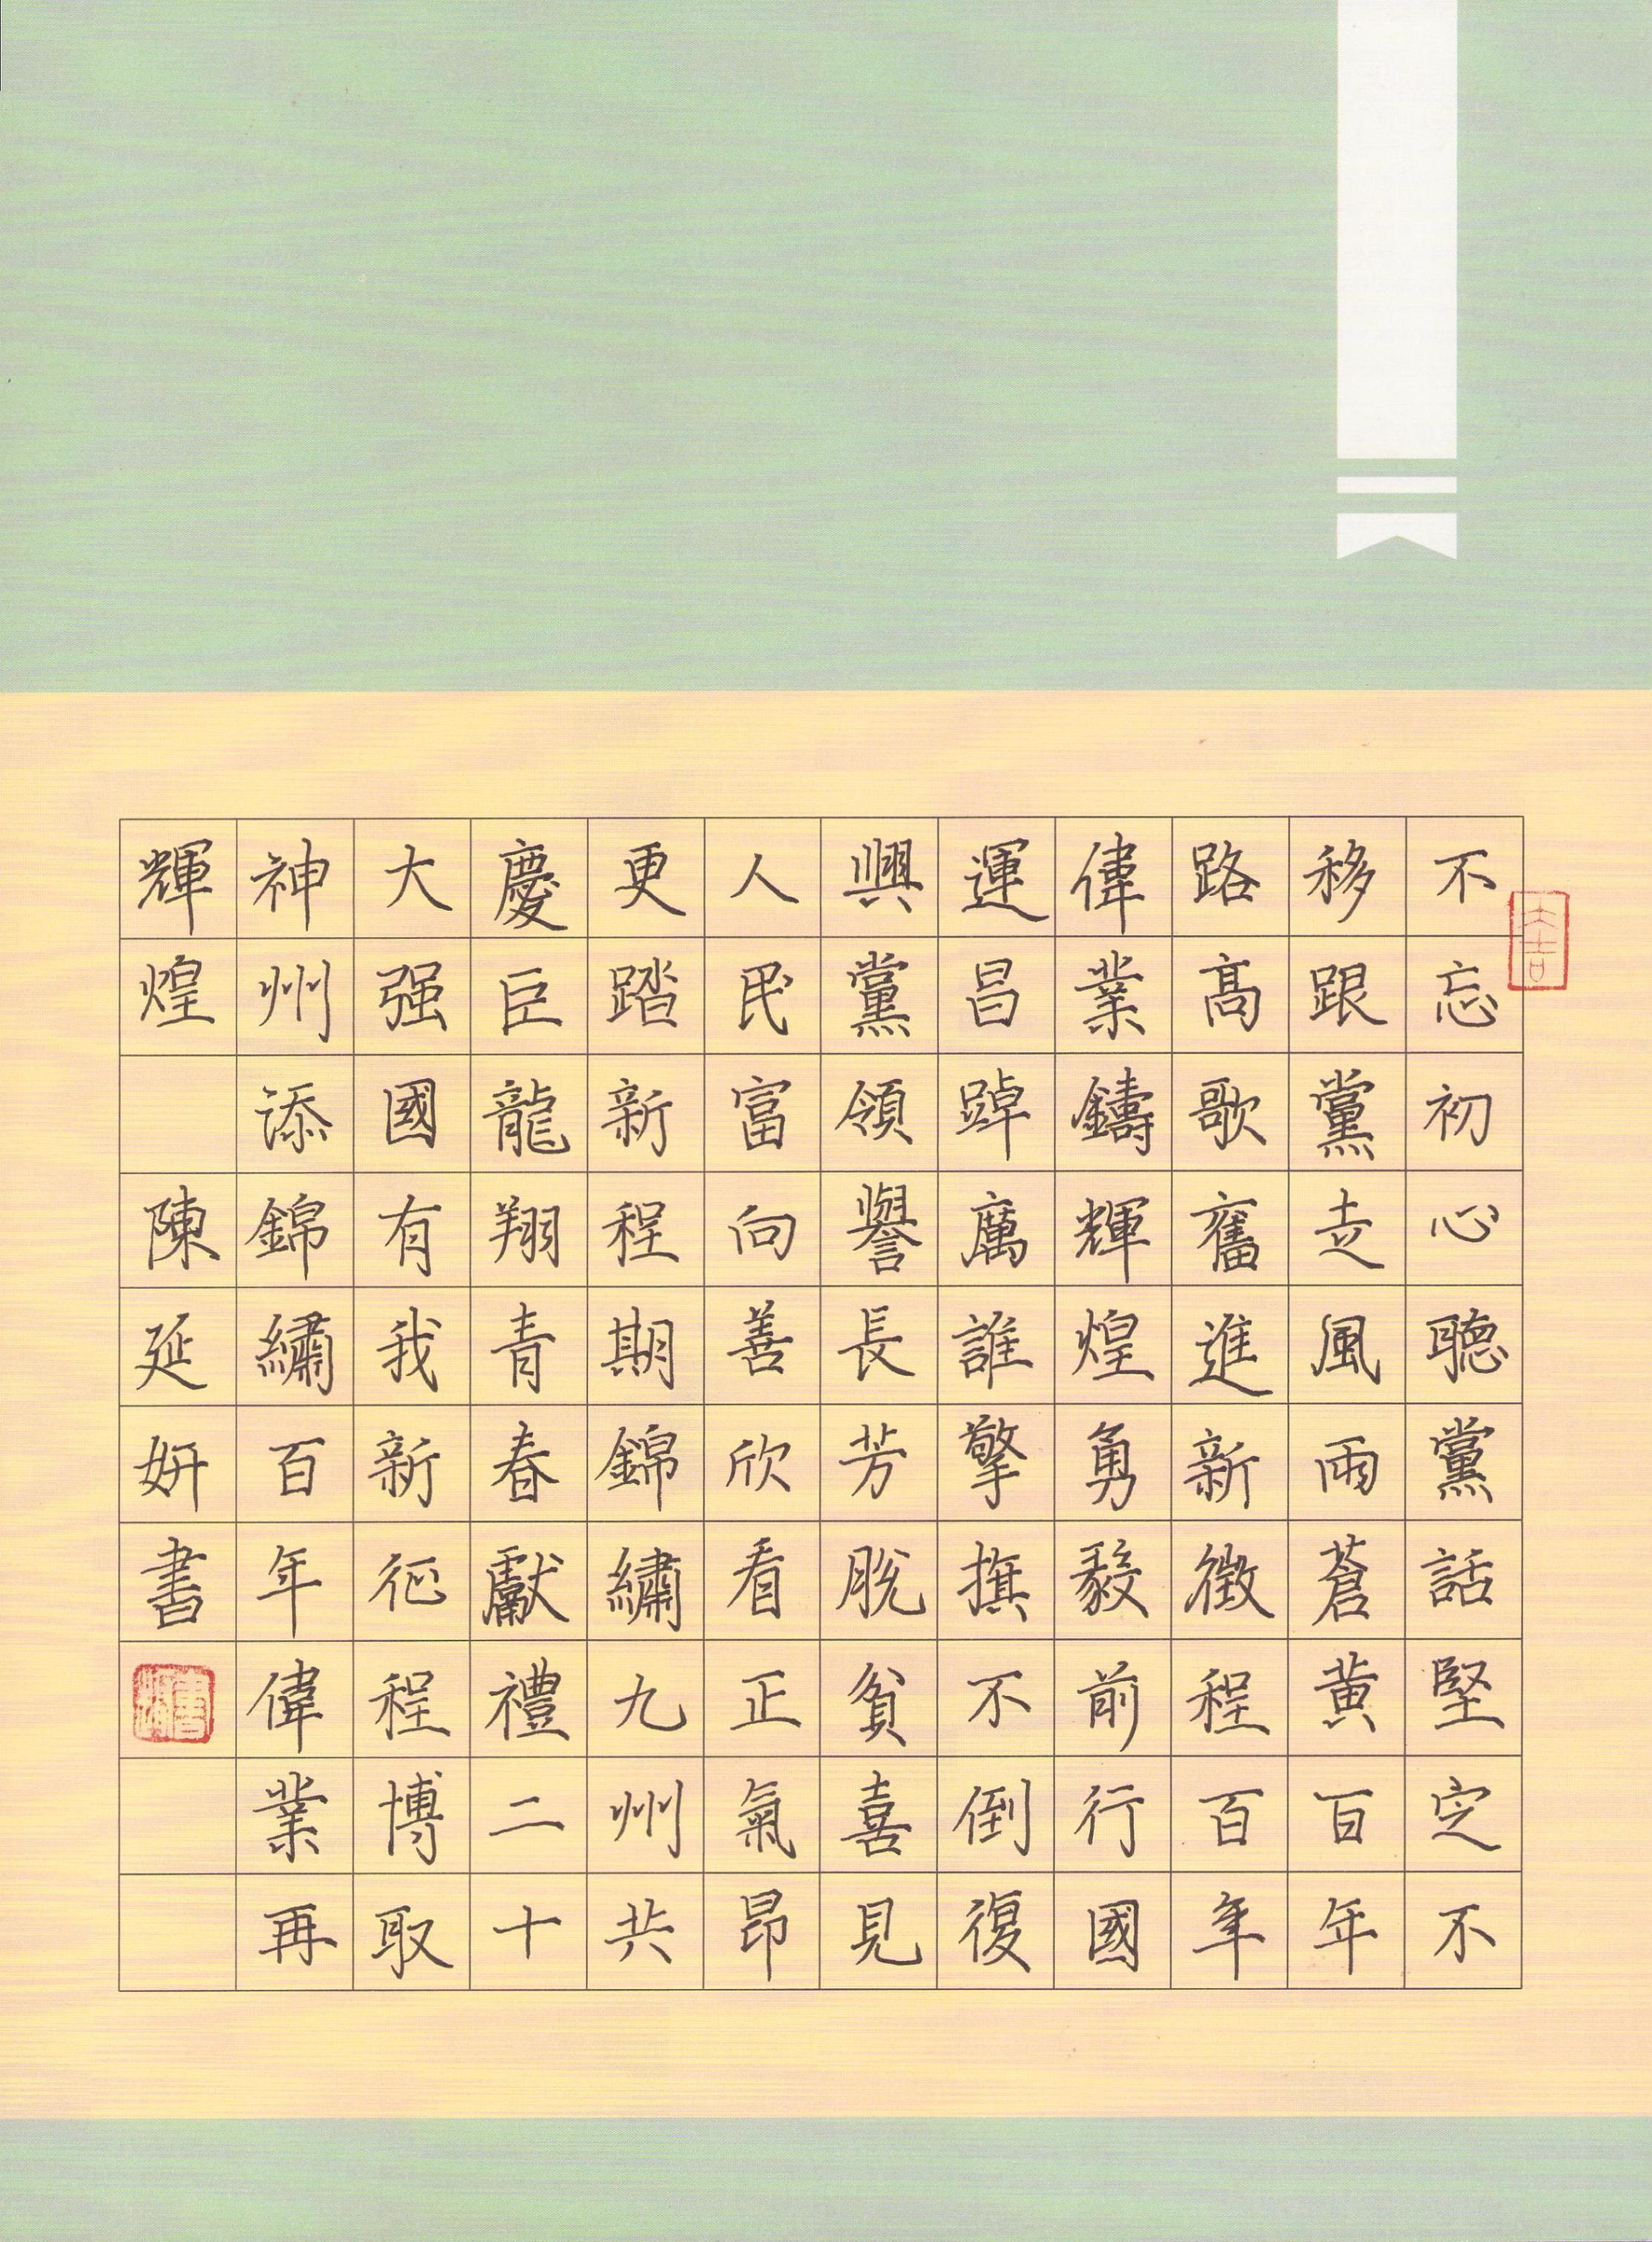 不忘初心聽黨話堅定不
移跟黨走風雨蒼黄百年
路高歌奮進新徵程百年
偉業鑄輝煌勇毅前行國
運昌踔厲誰擎旗不倒復
興黨領譽長芳脱貧喜見
人民富向善欣看正氣昂
更踏新程期錦繡九州共
慶巨龍翔青春獻禮二十
大强國有我新征程博取
神州添錦繡百年偉業再
輝煌 陳延妍書
大吉